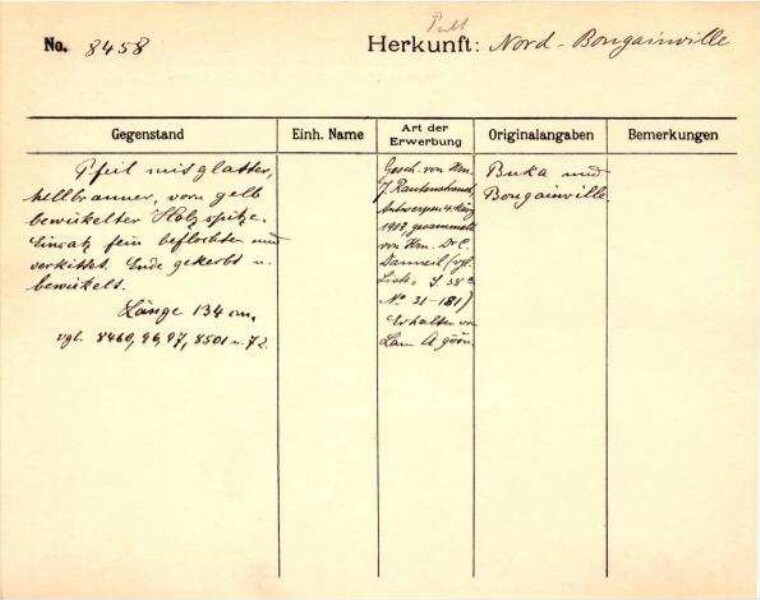 No. 8458
Herkunft: Nord-Bougainville
Gegenstand
Einh. Name
Art der Erwerbung
Originalangaben
Bemerkungen
Pfeil mit glatter,
hellbrauner, vorn gelb
bewickelter Holzspitze.
Einsatz fein beflochten und
verkittet. Ende gekerbt u.
bewickelt.
Länge 134 cm.
vgl. 8460, 96, 97, 8501 u. 72.
Gesch. von Hrn.
J. Rautenstrauch,
Antwerpen 4. März
1903, gesammelt
von Hrn. Dr. C.
Danneil (vgl.
Liste S. 38
No 31-181)
Erhalten von
Buka und
Bougainville.